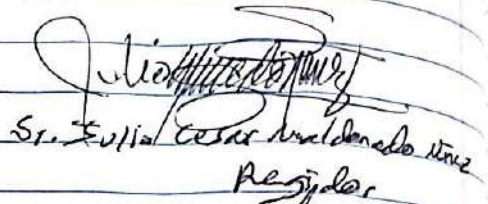 Sr. Julio Cesar Maldonado Nuñez
Regidor